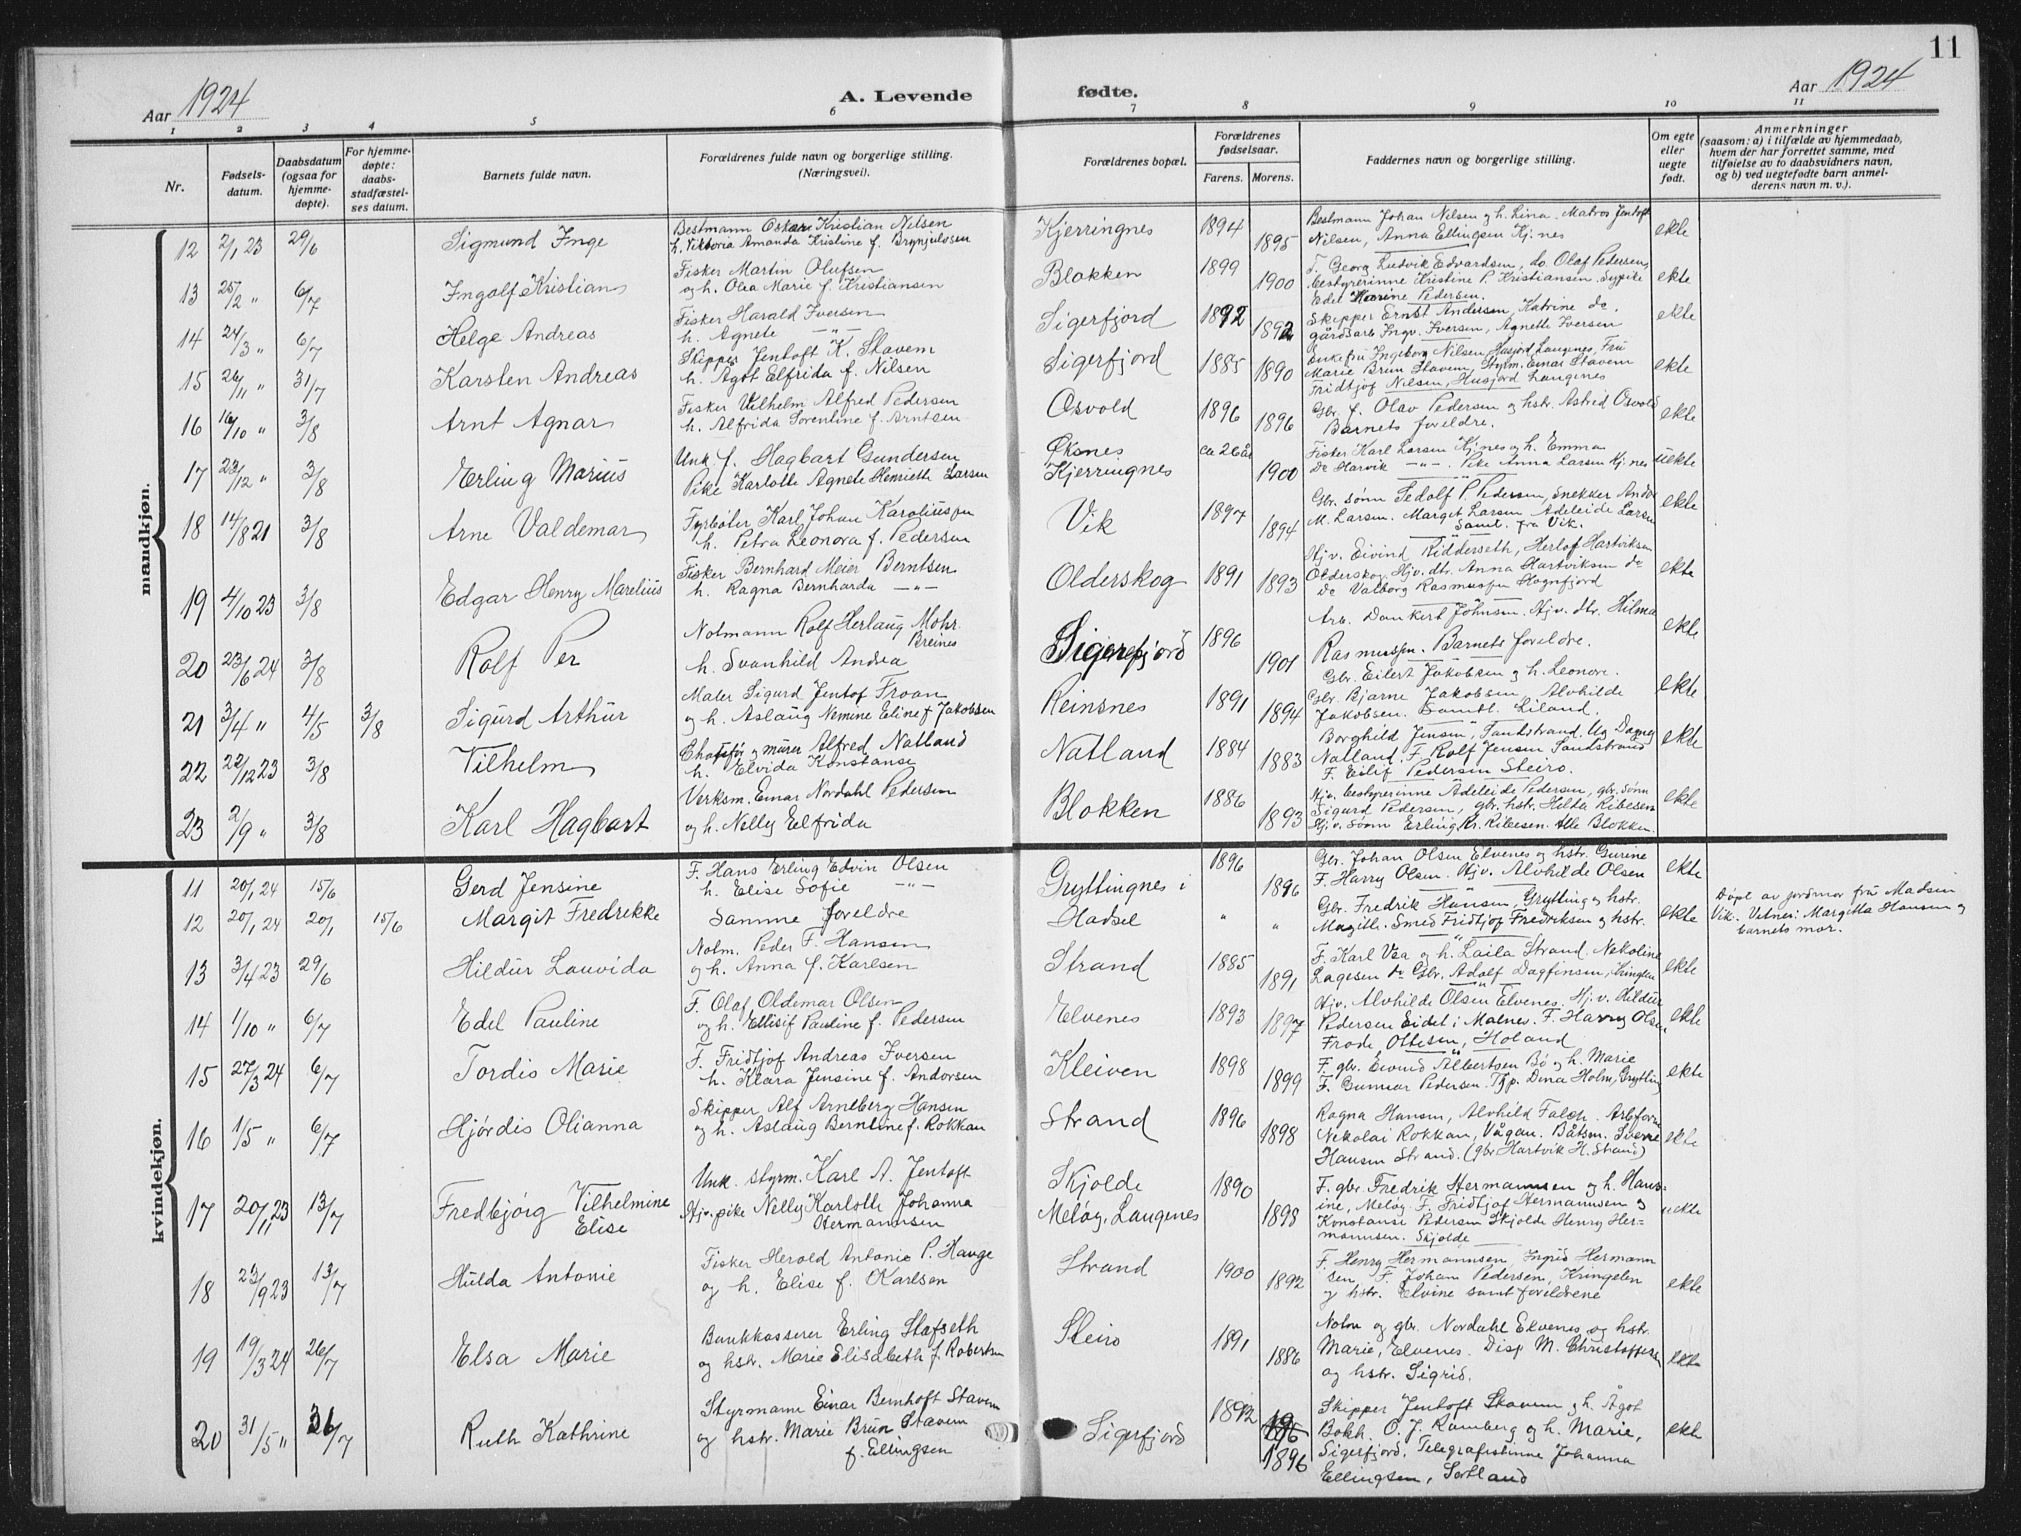 11
Aar 1924
A. Levende
fødte.
Aar 1924
1 2 3 4 5 6 7 8 9 10 11
Nr.
Fødsels-
datum.
Daabsdatum
(ogsaa for
hjemme-
døpte).
For hjemme-
døpte:
daabs-
stadfæstel-
ses datum.
Barnets fulde navn.
Forældrenes fulde navn og borgerlige stilling.
(Næringsvei).
Forældrenes bopæl.
Forældrenes
fødselsaar.
Farens. Morens.
Faddernes navn og borgerlige stilling.
Om egte
eller
uegte
født.
Anmerkninger
(saasom: a) i tilfælde av hjemmedaab,
hvem der har forrettet samme, med
tilføielse av to daabsvidners navn,
og b) ved uegtefødte barn anmel-
derens navn m. v.).
mandkjøn.
12 2/1 23 29/6 Sigmund Inge
Bestmann Oskar Kristian Nilsen
h. Viktoria Amanda Kristine f. Brynjulvsen
Kjerringnes 1894 1895
Bestmann Johan Nilsen og h. Lina. Matros Jentoft
Nilsen, Anna Ellingsen Kj.nes
ekte
13 25/2 " 6/7 Ingolf Kristian
Fisker Martin Olufsen
og h. Olea Marie f. Kristiansen
Blokken 1899 1900
F. Georg Ludvik Edvardsen, do. Olaf Pedersen,
bestyrerinne Kristine P. Kristiansen. Sypike
Edel Karine Pedersen.
ekte
14 24/3 " 6/7 Helge Andreas
Fisker Harald Iversen
h. Agnete —"—
Sigerfjord 1892 1892
Skipper Ernst Andersen, Katrine do.
gårdsarb. Ingv. Iversen, Agnette Iversen
ekte
15 26/11 " 31/7 Karsten Andreas
Skipper Jentoft K. Stavem
h. Agot Elfrida f. Nilsen
Sigerfjord 1885 1890
Enkefru Ingeborg Nilsen Husjord Langenes, Fru
Marie Brun Stavem, Styrm. Einar Stavem
Fridtjof Nilsen, Husjord Langenes
ekte
16 16/10 " 3/8 Arnt Agnar
Fisker Vilhelm Alfred Pedersen
h. Alfrida Sorentine f. Arntsen
Osvold 1896 1896
Gbr. f. Olav Pedersen og hstr. Astrid Osvold
Barnets foreldre.
ekte
17 23/12 " 3/8 Erling Marius
Unk. f. Hagbart Gundersen
Pike Karlotte Agnete Henriette Larsen
Øksnes
Kjerringnes ca 26 år 1900
Fisker Karl Larsen Kj.nes og h. Emma
Do Harvik —"—. Pike Anna Larsen Kj.nes
uekte
18 14/8 21 3/8 Arne Valdemar
Fyrbøter Karl Johan Karoliussen
h. Petra Leonora f. Pedersen
Vik 1897 1894
Gbr. sønn Tedolf P. Pedersen, Snekker Andor
M. Larsen. Margit Larsen Adeleide Larsen
Samtl. fra Vik.
ekte
19 4/10 23 3/8 Edgar Henry Marelius
Fisker Bernhard Meier Berntsen
h. Ragna Bernharda —"—
Olderskog 1891 1893
Hjv. Eivind Ridderseth, Herlof Hartviksen
Olderskog. Hjv. dtr. Anna Hartviksen do
Do Valborg Rasmussen Hognfjord
ekte
20 23/6 24 3/8 Rolf Per
Notmann Rolf Herlaug Mohr
Breines
h. Svanhild Andrea
Sigerfjord 1896 1901
Arb. Dankert Johnsen. Hjv. dtr. Hilma
Rasmussen. Barnets foreldre.
ekte
21 3/4 " 4/5 3/8 Sigurd Arthur
Maler Sigurd Jentof Froan
og h. Aslaug Nemine Eline f Jakobsen
Reinsnes 1891 1894
Gbr. Eilert Jakobsen og h. Leonore.
Gbr. Bjarne Jakobsen, Alvhilde
Jakobsen. Samtl. Liland.
ekte
22 22/12 23 3/8 Vilhelm
Chaufør og murer Alfred Natland
h. Elvida Konstanse
Natland 1884 1883
Borghild Jensen, Sandstrand. Ug Dagny
Natland. F. Rolf Jensen Sandstrand
F. Eilif Pedersen Steiro.
ekte
23 2/9 " 3/8 Karl Hagbart
Verksm. Einar Nordahl Pedersen
og h. Nelly Elfrida
Blokken 1886 1893
Hjv. bestyrerinne Adeleide Pedersen, gbr. sønn
Sigurd Pedersen, gbr. hstr. Hilda Ribesen
Hjv. sønn Erling Kr. Ribesen. Alle Blokken.
ekte
kvindekjøn.
11 20/1 24 15/6 Gerd Jensine
F. Hans Erling Edvin Olsen
h. Elise Sofie —"—
Gryttingnes i 1896 1896
Gbr. Johan Olsen Elvenes og hstr. Gurine
F. Harry Olsen. Hjv. Alvhilde Olsen
ekte
12 20/1 24 20/1 15/6 Margit Fredrikke
Samme foreldre
Hadsel " "
Gbr. Fredrik Hansen, Grytting og hstr.
Magith. Smed Fridtjof Fredriksen og hstr.
ekte
Døpt av jordmor frú Madsen
Vik. Vitner: Margitta Hansen og
barnets mor.
13 3/4 23 29/6 Hildur Louvida
Notm. Peder F. Hansen
og h. Anna f. Karlsen
Strand 1885 1891
F. Karl Vea og h. Laila Strand. Nekoline
Lagesen do Gbr. Adolf Dagfinsen, Kringelen
ekte
14 1/10 " 6/7 Edel Pauline
F. Olaf Oldemar Olsen
og h. Ellisif Pauline f. Pedersen
Elvenes 1893 1897
Hjv. Alvhilde Olsen Elvenes. Hj.v. Hildur
Pedersen Eidet i Malnes. F. Harry Olsen
Frode Ottesen, Holand
ekte
15 27/3 24 6/7 Tordis Marie
F. Fridtjof Andreas Iversen
h. Klara Jensine f. Andorsen
Kleiven 1898 1899
F. gbr. Eivind Albertsen Bø og h. Marie
F. Gunnar Pedersen. Tjp. Dina Holm, Grytting
ekte
16 1/5 " 6/7 Hjørdis Olianna
Skipper Alf Arneberg Hansen
og h. Aslaug Berntine f. Rokkan
Strand 1896 1898
Ragna Hansen, Alvhild Falch. Arb.form
Nekolai Rokkan, Vågan. Båtsm. Sverre
Hansen Strand. (gbr Hartvik H. Strand)
ekte
17 20/1 23 13/7 Fredbjørg Vilhelmine
Elise
Unk. styrm. Karl A. Jentoft
Hjv. pike Nelly Karlotte Johanna
Hermannsen
Skjolde
Meløy, Langenes 1890 1898
F. gbr. Fredrik Hermannsen og h. Hans=
ine, Meløy. F. Fridtjof Hermannsen og
Konstanse Pedersen Skjolde Henry Her=
mannsen. Skjolde
uekte
18 23/9 23 13/7 Hulda Antonie
Fisker Herold Antonie P. Hauge
og h. Elise f. Karlsen
Strand 1900 1892
F. Henry Hermannsen, Ingrid Hermann
sen, F. Johan Pedersen, Kringelen
og hstr. Elvine samt foreldrene
ekte
19 19/3 24 26/7 Elsa Marie
Bankkasserer Erling Slafseth
og hstr. Marie Elisabeth f. Robertsen
Steiro 1891 1886
Notm og gbr. Nordahl Elvenes og hstr.
Marie, Elvenes. Disp M. Christoffersen
og hstr. Sigrid.
ekte
20 31/5 " 26/7 Ruth Kathrine
Styrmann Einar Bernhoft Stavem
og hstr. Marie Brun Stavem
f. Ellingsen
Sigerfjord 1892 1896
Skipper Jentoft Stavem og h. Ågot
Bokh. O. J. Ramberg og h. Marie,
Sigerfjord. Telegrafistinne Johanna
Ellingsen, Sortland
ekte